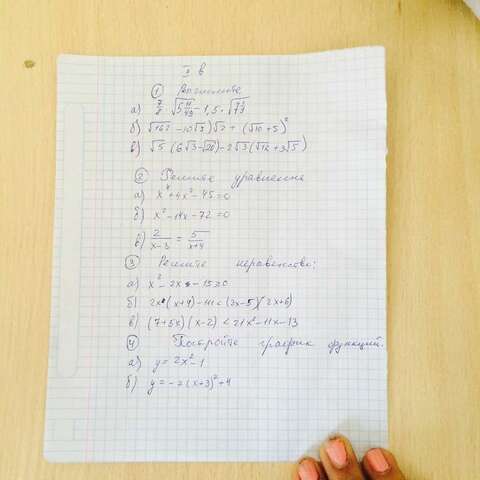 I в
① Вычислите
а) 7/8 √5 11/49 - 1,5 · √
б) √162 - 10√5) √2 + (√10 + 5)²
в) √5 (6√3 - √20) - 2√3 (√12 + 3√5)
② Решите уравнения
а) x⁴ + 4x² - 45 = 0
б) x² - 14x - 72 = 0
в) 2/(x-3) = 5/(x+4)
③ Решите неравенство:
а) x² - 2x - 15 ≥ 0
б) 2x (x+4) < (2x-5)(2x+6)
в) (7+5x)(x-2) < 21x² - 11x - 13
④ Постройте график функций.
а) y = 2x² - 1
б) y = -2(x+3)² + 4